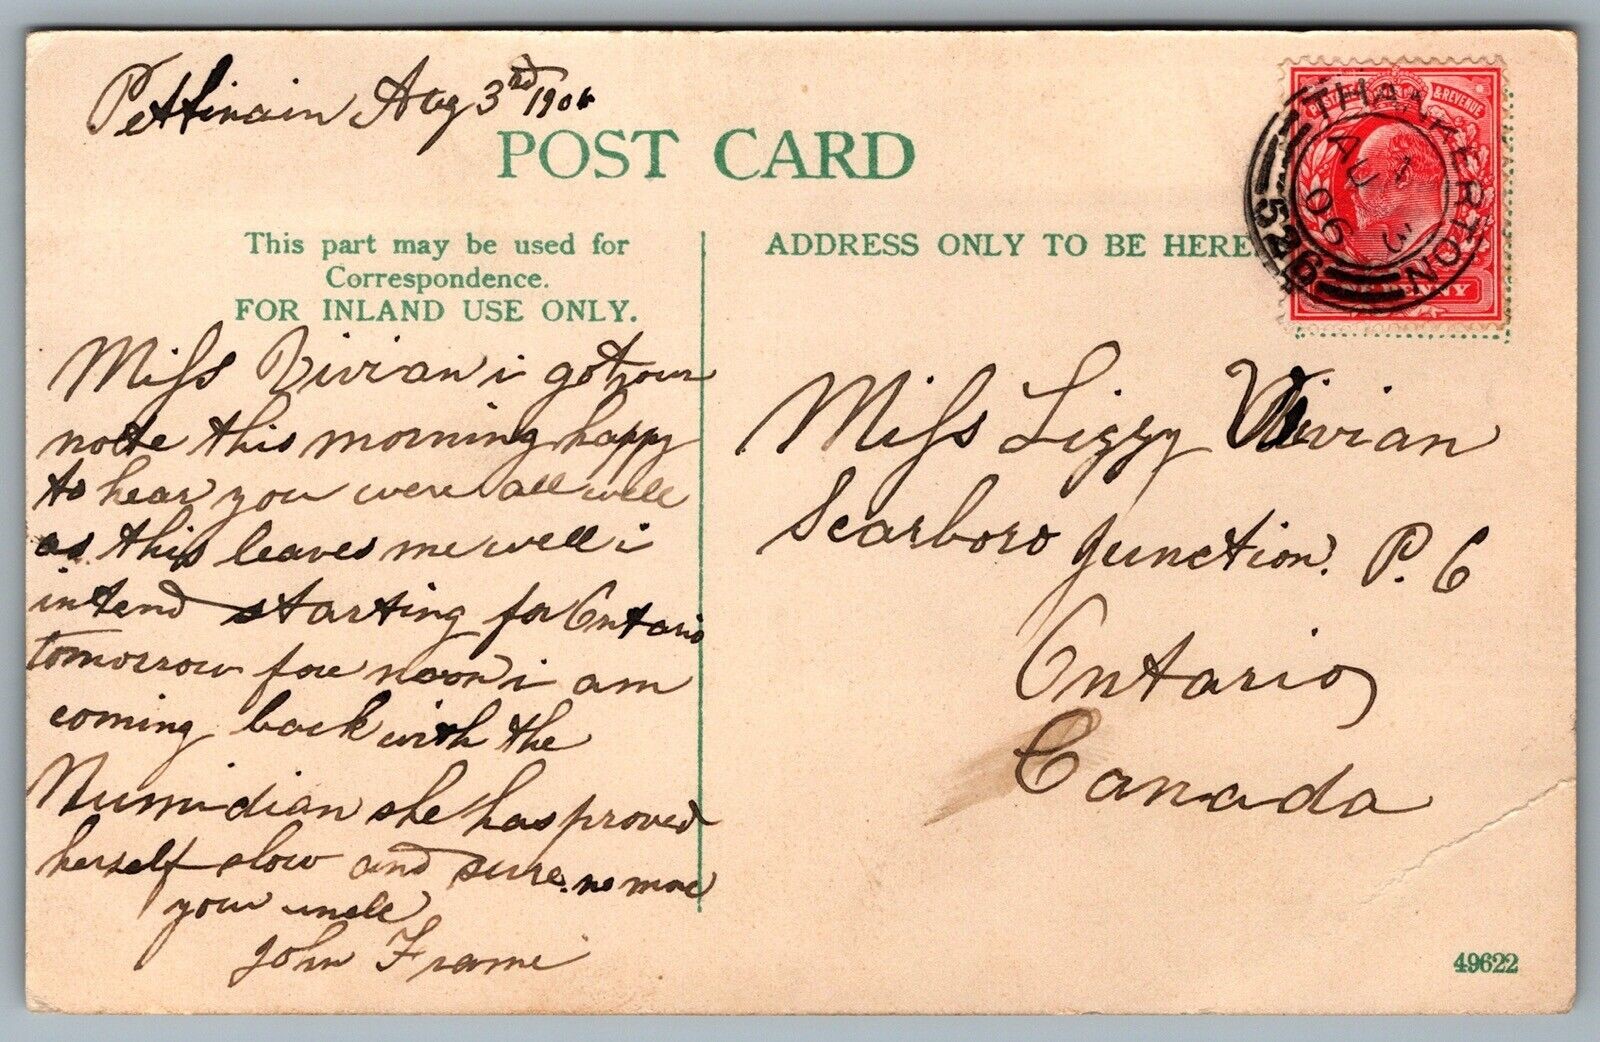 Pettinain Aug 3rd 1906
POST CARD
This part may be used for
Correspondence.
FOR INLAND USE ONLY.
ADDRESS ONLY TO BE HERE
POSTAGE & REVENUE
ONE PENNY
THANKERTON
1
AU 3
06
526
Miss Vivian i got your
notte this morning happy
to hear you were all well
as this leaves me well i
intend starting for Ontario
tomorrow fore noon i am
coming back with the
Numidian she has proved
herself slow and sure. no more
your uncle
John Frame
Miss Lizzy Vivian
Scarboro Junction. P. O
Ontario
Canada
49622